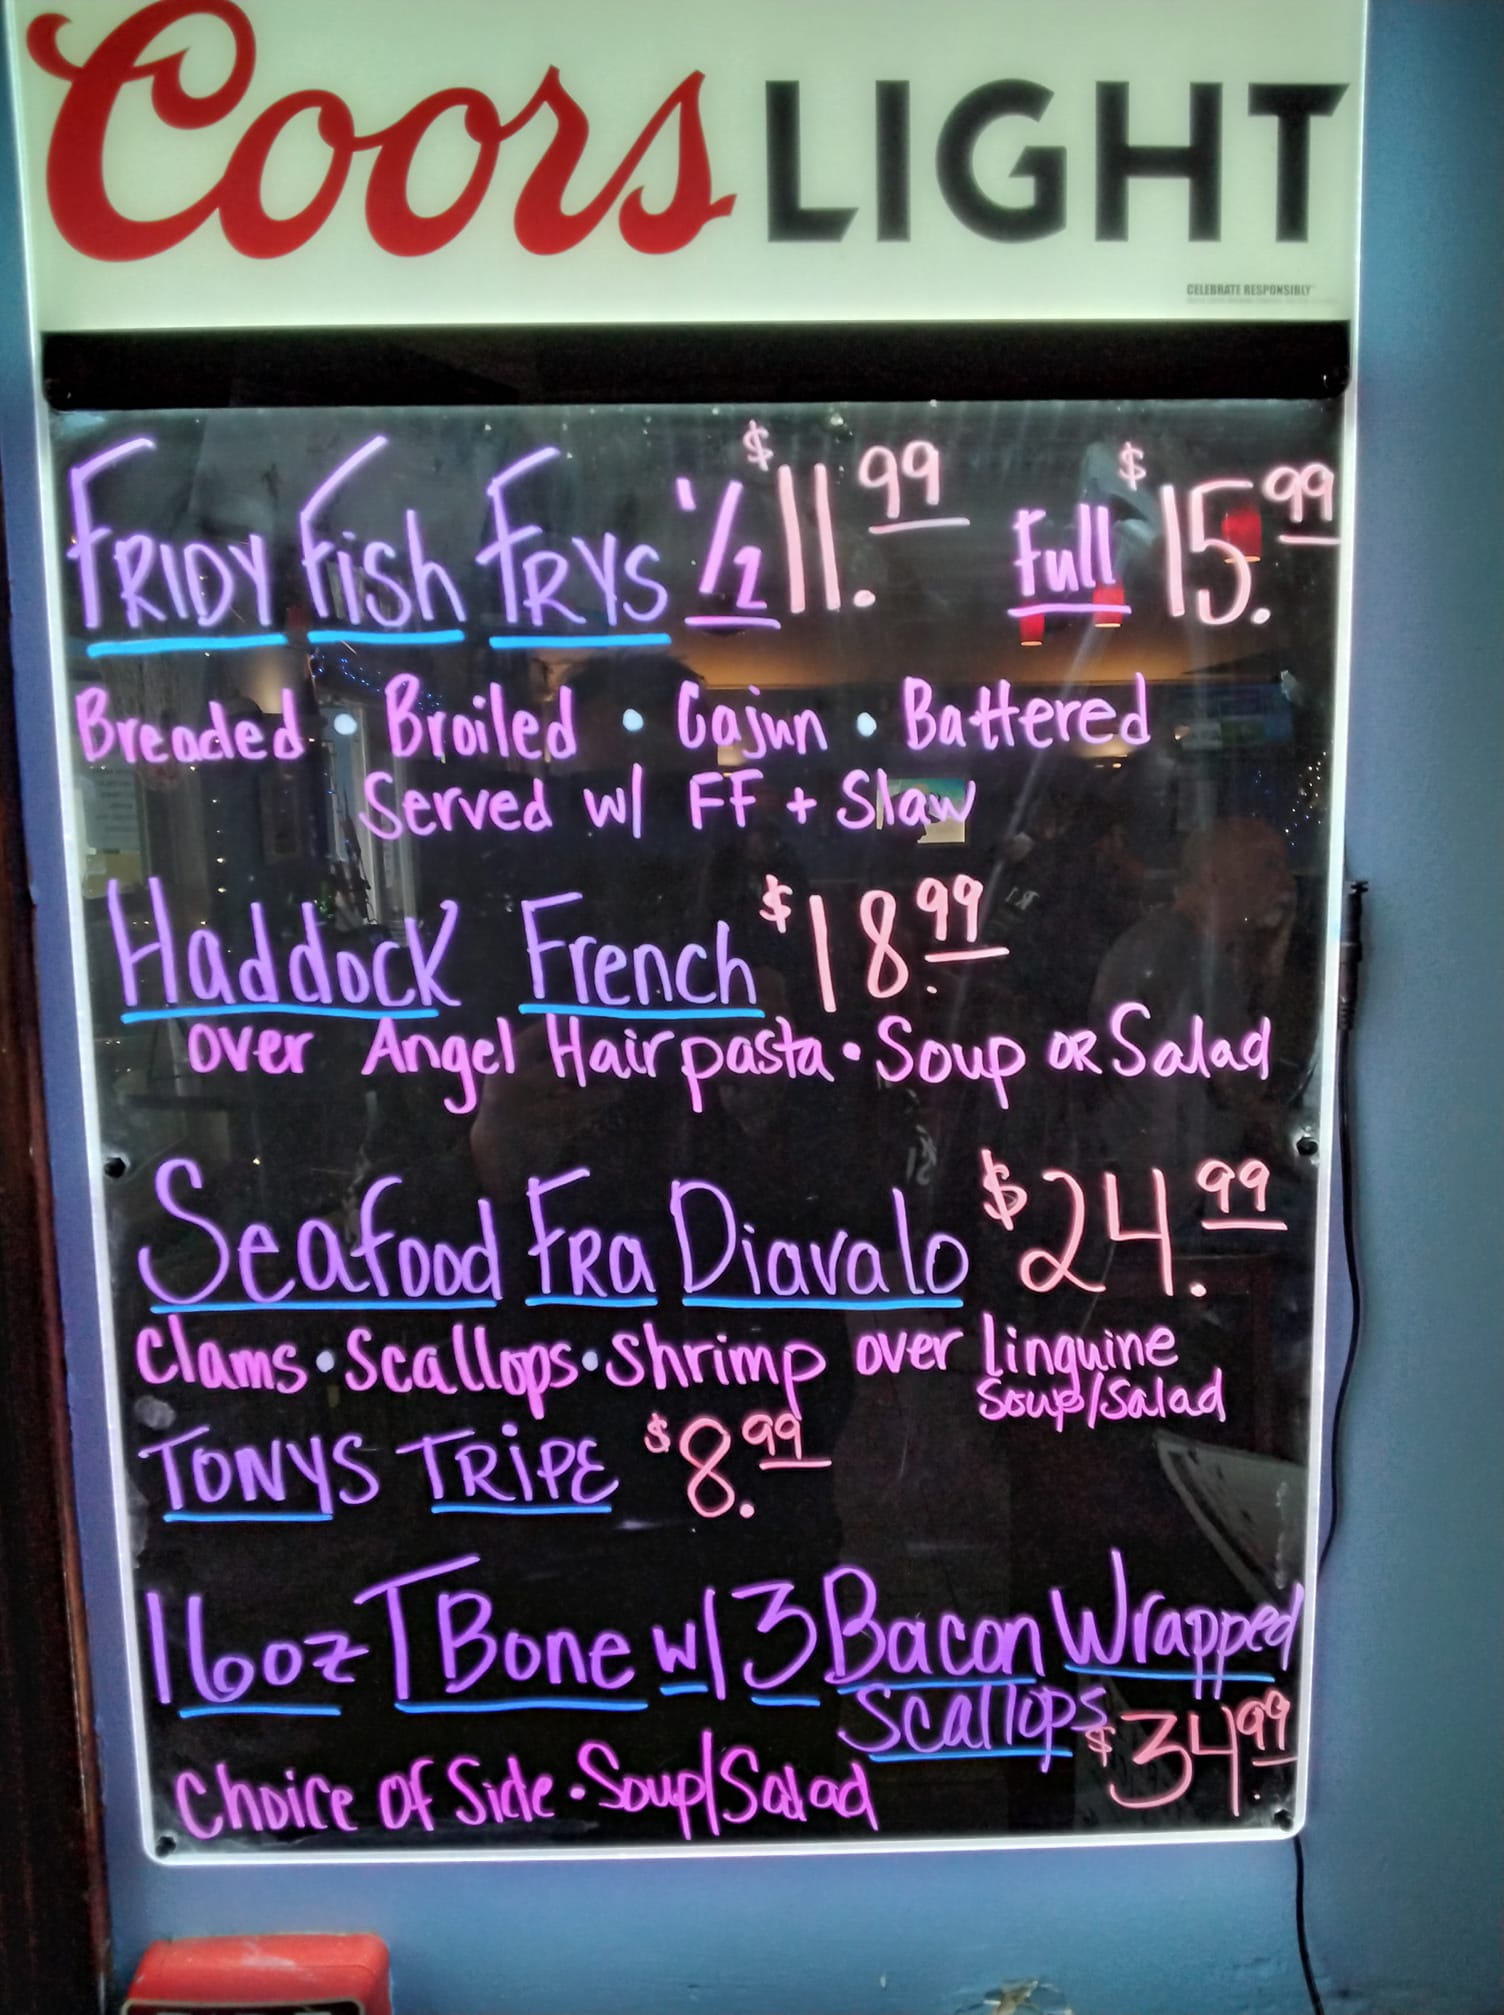 Coors LIGHT
CELEBRATE RESPONSIBLY
FRIDY Fish FRYS 1/2 $11.99 Full $15.99
Breaded • Broiled • Cajun • Battered
Served w/ FF + Slaw
Haddock French $18.99
over Angel Hair pasta • Soup OR Salad
Seafood FRA Diavalo $24.99
Clams • Scallops • Shrimp over linguine
Soup/Salad
TONYS TRIPE $8.99
16oz T Bone w/ 3 Bacon Wrapped
Scallops $34.99
Choice of Side • Soup/Salad